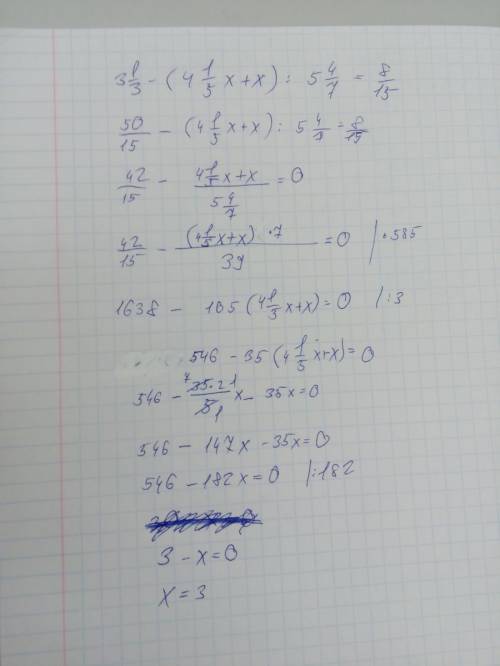 3 1/3 - (4 1/5 x + x) : 5 4/7 = 8/15
50/15 - (4 1/5 x + x) : 5 4/7 = 8/15
42/15 - (4 1/5 x + x)/(5 4/7) = 0
42/15 - ((4 1/5 x + x) · 7)/39 = 0 | · 585
1638 - 105 (4 1/5 x + x) = 0 | : 3
546 - 35 (4 1/5 x + x) = 0
546 - 7 35 · 21/5 1 x - 35x = 0
546 - 147x - 35x = 0
546 - 182x = 0 | : 182
3 - x = 0
x = 3